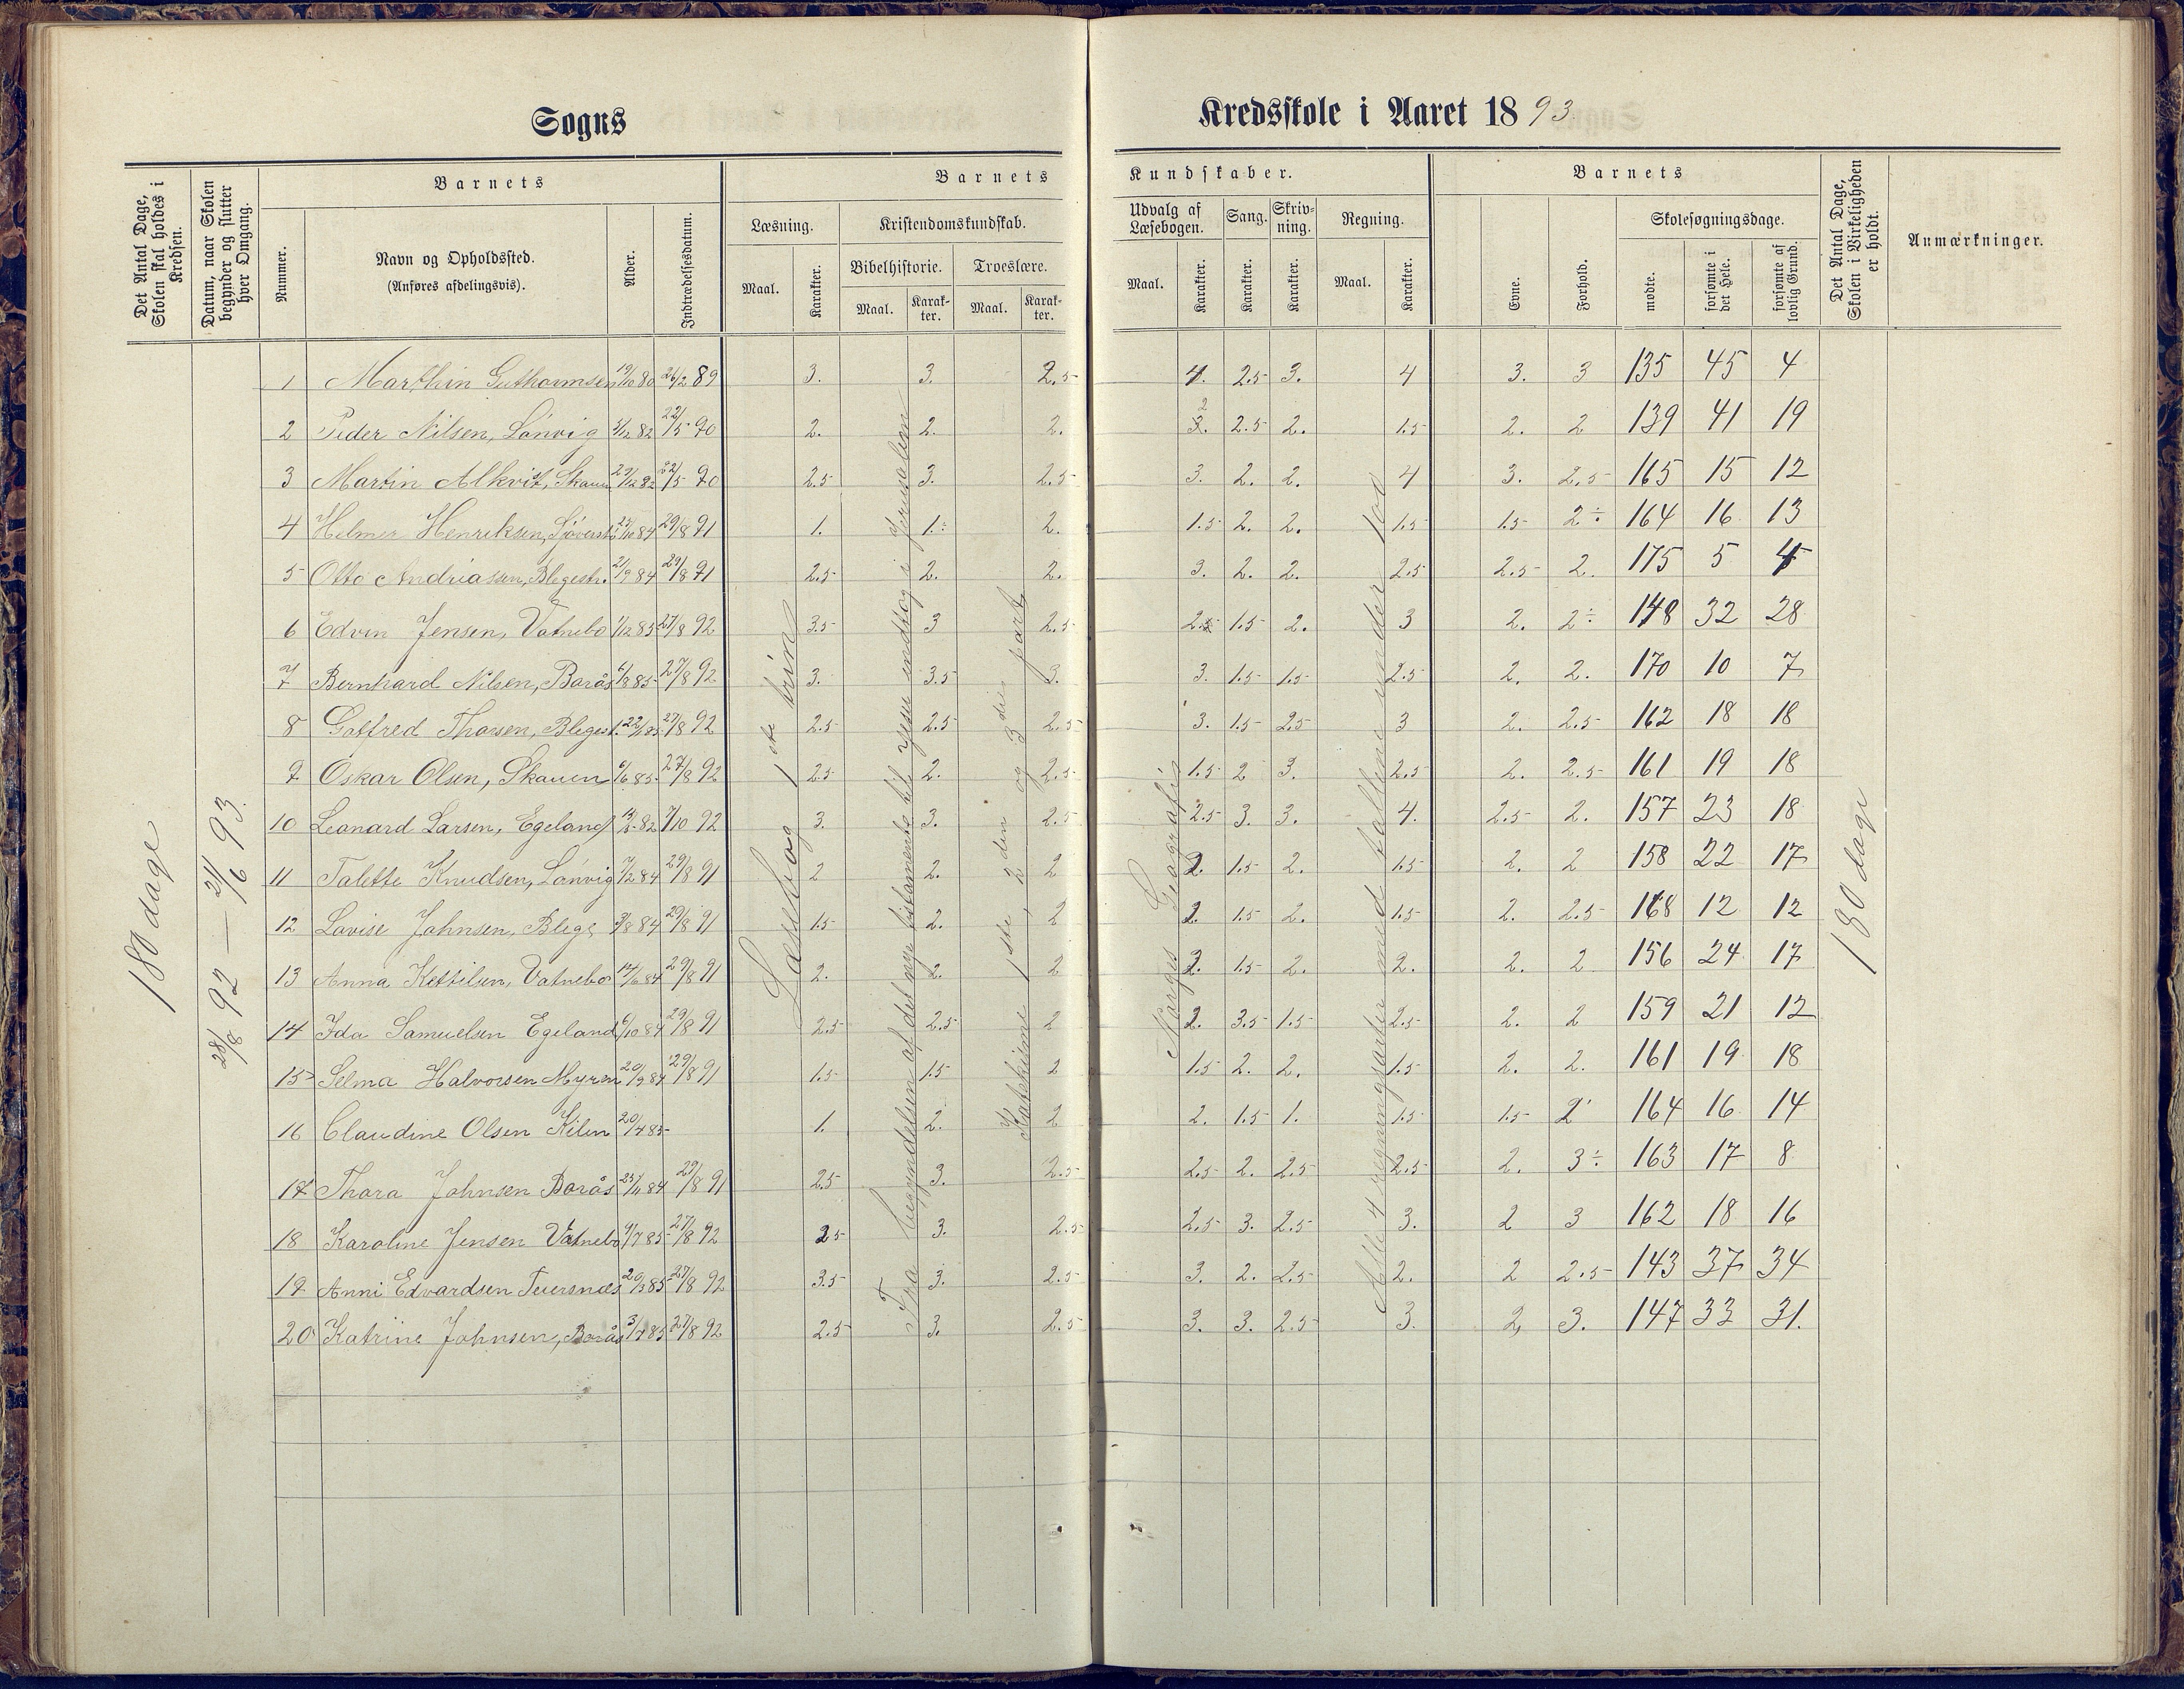 Sogns
Kredsskole i Aaret 1893.
Det Antal Dage, Skolen skal holdes i Kredsen.
Datum, naar Skolen begynder og slutter hver Omgang.
Barnets
Nummer.
Navn og Opholdssted.
(Anføres afdelingsvis).
Alder.
Indtrædelsesdatum.
Barnets
Kundskaber.
Læsning.
Maal.
Karakter.
Kristendomskundskab.
Bibelhistorie.
Maal.
Karakter.
Troeslære.
Maal.
Karakter.
Udvalg af Læsebogen.
Maal.
Karakter.
Sang.
Karakter.
Skrivning.
Karakter.
Regning.
Maal.
Karakter.
Barnets
Evne.
Forhold.
Skolesøgningsdage.
mødte.
forsømte i det Hele.
forsømte af lovlig Grund.
Det Antal Dage, Skolen i Virkeligheden er holdt.
Anmærkninger.
180 dage
28/8 92 — 21/6 93.
Læsebog 1ste trin
Fra begyndelsen af det nye testamente til Jesu indtog i Jerusalem
Katekisme 1ste, 2den og 3die part
Norges Geografi
Alle 4 regningsarter med tallene under 100
180 dage
1 Marthin Guthormsen 19/10 80 26/2 89 3. 3. 2.5 4. 2.5 3. 4 3. 3 135 45 4
2 Peder Nilsen, Lønvig 5/12 82 22/5 90 2. 2. 2. 2 3. 2.5 2. 1.5 2. 2 139 41 19
3 Martin Alkvist, Skauen 29/12 82 22/5 90 2.5 3. 2.5 3. 2. 2. 4 3. 2.5 165 15 12
4 Helmer Henriksen, 25/10 84 29/8 91 1. 1.÷ 2. 1.5 2. 2. 1.5 1.5 2÷ 164 16 13
5 Otto Andriasen, Blegestr. 2/9 84 29/8 91 2.5 2. 2. 3. 2. 2. 2.5 2.5 2. 175 5 4
6 Edvin Jensen, Vatnebo 1/12 85 27/8 92 3.5 3 2.5 2.5 1.5 2. 3 2. 2÷ 148 32 28
7 Bernhard Nilsen, Borås 6/8 85 27/8 92 3. 3.5 3. 3. 1.5 1.5 2.5 2. 2. 170 10 7
8 Gotfred Thorsen, Blegest. 27/8 92 2.5 2.5 2.5 3. 1.5 2.5 3 2. 2.5 162 18 18
9 Oskar Olsen, Skauen 6/6 85 27/8 92 2.5 2. 2.5 1.5 2 3. 2.5 2. 2.5 161 19 18
10 Leonard Larsen, Egeland 82 7/10 92 3. 3. 2.5 2.5 3. 3. 4. 2.5 2. 157 23 18
11 Talette Knudsen, Lønvig 7/2 84 29/8 91 2 2. 2 2. 1.5 2. 1.5 2. 2 158 22 17
12 Lovise Johnsen, Blege 3/8 84 29/8 91 1.5 2. 2 2. 1.5 2. 1.5 2. 2.5 168 12 12
13 Anna Kettilsen, Vatnebo 14/6 84 29/8 91 2. 2. 2 2. 1.5 2. 2. 2. 2 156 24 17
14 Ida Samuelsen Egeland 6/10 84 29/8 91 2.5 2.5 2 2. 3.5 1.5 2.5 2. 2 159 21 12
15 Selma Halvorsen Myren 20/9 84 29/8 91 1.5 1.5 2 1.5 2. 2. 1.5 2. 2. 161 19 18
16 Claudine Olsen Kilen 20/4 85 1. 2. 2 2. 1.5 1. 1.5 1.5 2 164 16 14
17 Thora Johnsen Borås 25/11 84 29/8 91 2.5 3. 2.5 2.5 2. 2.5 2.5 2. 3÷ 163 17 8
18 Karoline Jensen Vatnebo 9/7 85 27/8 92 2.5 3. 2.5 2.5 3. 2.5 3. 2 3 162 18 16
19 Anni Edvardsen 20/3 85 27/8 92 3.5 3. 2.5 3. 2. 2.5 2. 2 2.5 143 37 34
20 Katrine Johnsen, Borås 3/7 85 27/8 92 2.5 3. 2.5 3. 3. 2.5 3. 2, 3. 147 33 31.